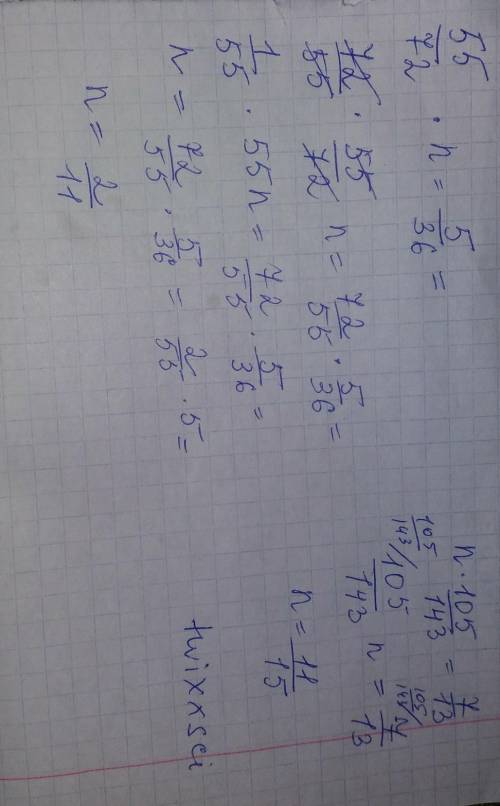 55/72 · n = 5/36 =
72/55 · 55/72 n = 72/55 · 5/36 =
1/55 · 55n = 72/55 · 5/36 =
n = 72/55 · 5/36 = 2/55 · 5 =
n = 2/11
n · 105/143 = 7/13
105/143 n =
n = 11/15
twixxsci